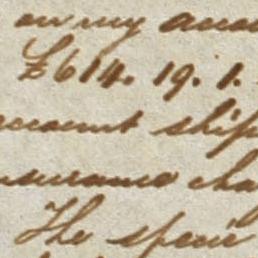 on my acco
£614. 19. 1.
amount ship
insurance cha
The specie